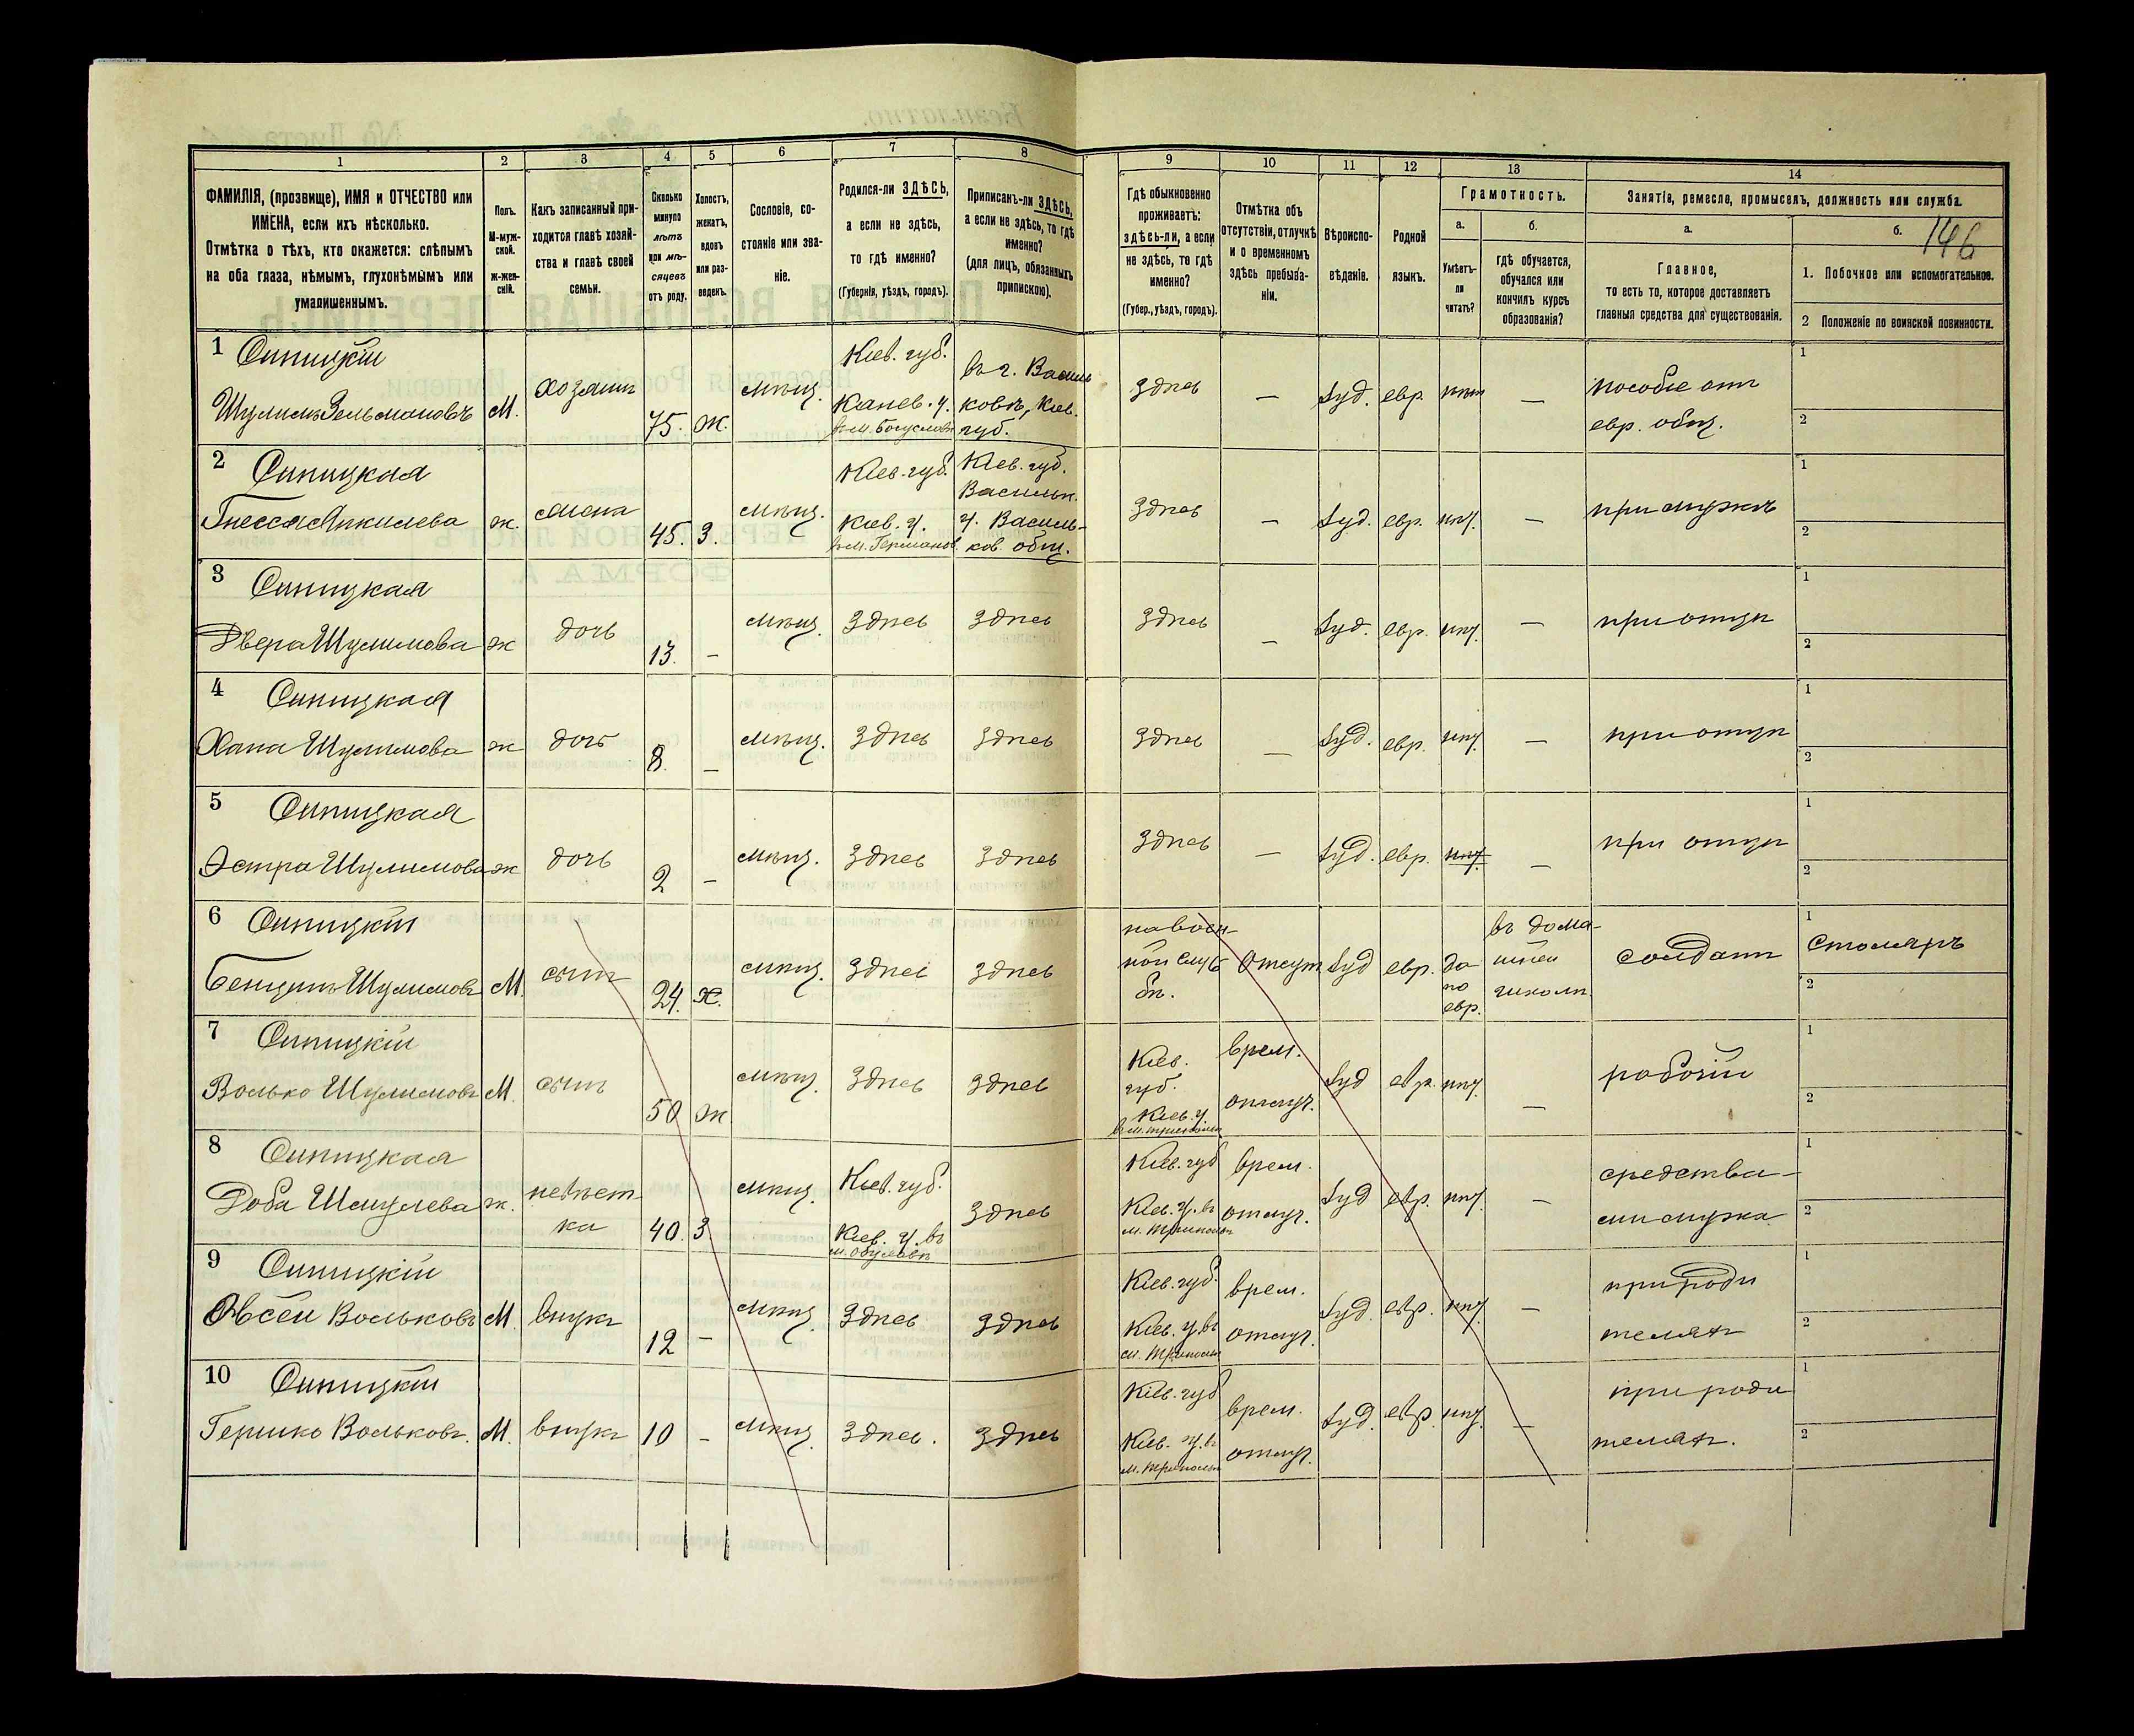 146
1 2 3 4 5 6 7 8 9 10 11 12 13 14
ФАМИЛІЯ, (прозвище), ИМЯ и ОТЧЕСТВО или
ИМЕНА, если ихъ нѣсколько.
Отмѣтка о тѣхъ, кто окажется: слѣпымъ
на оба глаза, нѣмымъ, глухонѣмымъ или
умалишеннымъ.
Полъ.
М-муж-
ской.
ж-жен-
скій.
Какъ записанный при-
ходится главѣ хозяй-
ства и главѣ своей
семьи.
Сколько
минуло
лѣтъ
или мѣ-
сяцевъ
отъ роду.
Холостъ,
женатъ,
вдовъ
или раз-
веденъ.
Сословіе, со-
стояніе или зва-
ніе.
Родился-ли ЗДѢСЬ,
а если не здѣсь,
то гдѣ именно?
(Губернія, уѣздъ, городъ).
Приписанъ-ли ЗДѢСЬ,
а если не здѣсь, то гдѣ
именно?
(для лицъ, обязанныхъ
припискою).
Гдѣ обыкновенно
проживаетъ:
здѣсь-ли, а если
не здѣсь, то гдѣ
именно?
(Губер., уѣздъ, городъ).
Отмѣтка объ
отсутствіи, отлучкѣ
и о временномъ
здѣсь пребыва-
ніи.
Вѣроиспо-
вѣданіе.
Родной
языкъ.
Грамотность.
а.
Умѣетъ-
ли
читать?
б.
гдѣ обучается,
обучался или
кончилъ курсъ
образованія?
Занятія, ремесло, промыселъ, должность или служба.
а.
Главное,
то есть то, которое доставляетъ
главныя средства для существованія.
б.
1. Побочное или вспомогательное.
2 Положеніе по воинской повинности.
1 Синицкій
Шулимъ Зельмановъ
М.
хозяинъ
75.
ж.
мѣщ.
Кіев. губ.
Канев. у.
въ м. Богуславѣ
въ г. Василь
ковѣ, Кіев.
губ.
здѣсь
—
Іуд.
евр.
нѣт
—
пособіе отъ
евр. общ.
1
2
2 Синицкая
Гнесся Янкилева
ж.
жена
45.
З.
мѣщ.
Кіев. губ.
Кіев. у.
въ м. Германов.
Кіев. губ.
Васильк.
у. Василь-
ков. общ.
здѣсь
—
Іуд.
евр.
нѣт.
—
при мужѣ
1
2
3 Синицкая
Двера Шулимова
ж
дочь
13.
—
мѣщ.
здѣсь
здѣсь
здѣсь
—
Іуд.
евр.
нѣт.
—
при отцѣ
1
2
4 Синицкая
Хана Шулимова
ж
дочь
8.
—
мѣщ.
здѣсь
здѣсь
здѣсь
—
Іуд.
евр.
нѣт.
—
при отцѣ
1
2
5 Синицкая
Эстра Шулимова
ж
дочь
2
—
мѣщ.
здѣсь
здѣсь
здѣсь
—
Іуд.
евр.
нѣт.
—
при отцѣ
1
2
6 Синицкій
Бенцинъ Шулимовъ
М.
сынъ
24.
х.
мѣщ.
здѣсь
здѣсь
на воен-
ной служ
бѣ.
Отсут.
Іуд
евр.
да
по
евр.
въ дома-
шней
школѣ.
солдатъ
1 Столяръ
2
7 Синицкій
Волько Шулимовъ
М.
сынъ
50
ж
мѣщ.
здѣсь
здѣсь
Кіев.
губ.
Кіев. у
в м. Триполѣ
врем.
отлуч.
Іуд
евр.
нѣт.
—
рабочій
1
2
8 Синицкая
Доба Шмулева
ж.
невѣст-
ка
40.
З.
мѣщ.
Кіев. губ.
Кіев. у. въ
м. Обуховѣ
здѣсь
Кіев. губ
Кіев. у. въ
м. Триполѣ
врем.
отлуч.
Іуд
евр.
нѣт.
—
средства-
ми мужа
1
2
9 Синицкій
Овсей Вольковъ
М.
внукъ
12
—
мѣщ.
здѣсь
здѣсь
Кіев. губ.
Кіев. у. въ
м. Триполѣ
врем.
отлуч.
Іуд.
евр.
нѣт.
—
при роди
теляхъ
1
2
10 Синицкій
Гершко Вольковъ.
М.
внукъ
10
—
мѣщ.
здѣсь.
здѣсь
Кіев. губ
Кіев. у. въ
м. Триполѣ
врем.
отлуч.
Іуд.
евр.
нѣт.
—
при роди
теляхъ.
1
2